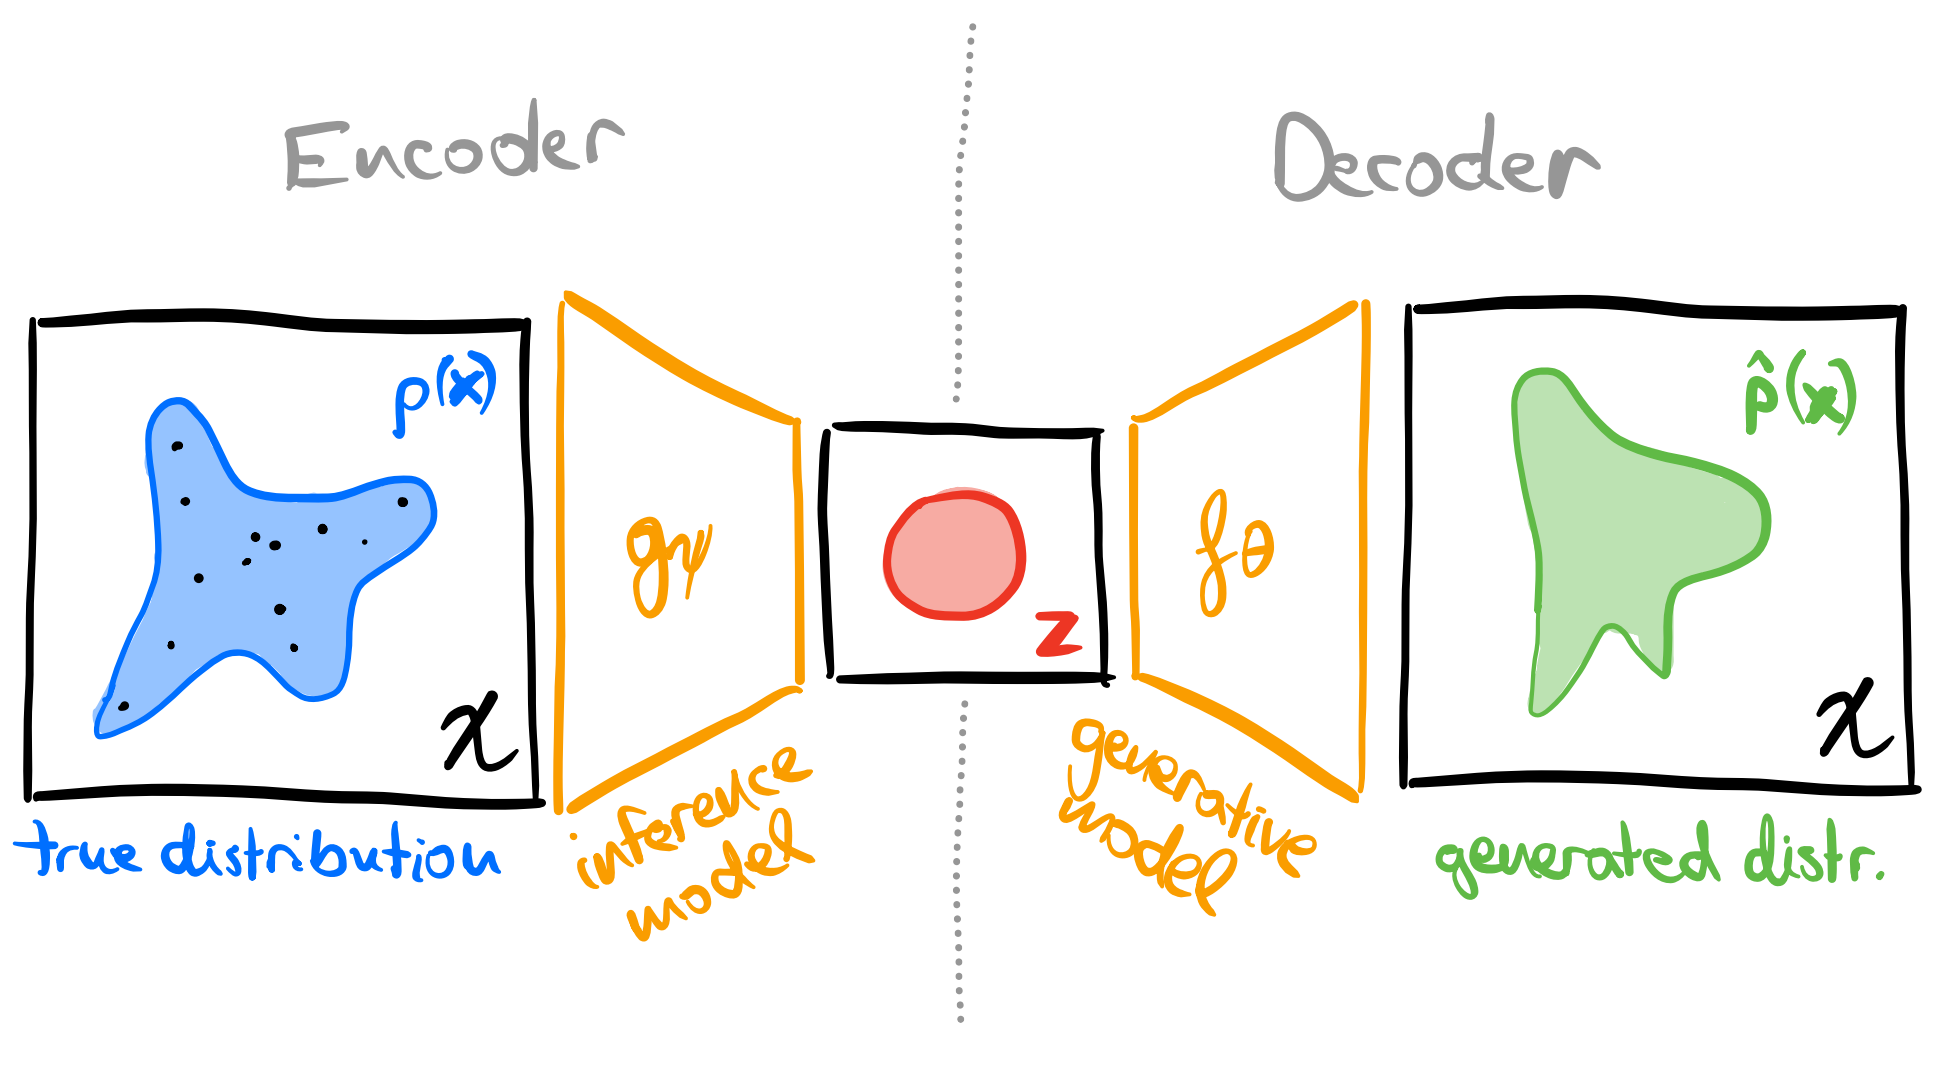 Encoder
Decoder
p(x)
gψ
z
fθ
p̂(x)
χ
χ
true distribution
inference
model
generative
model
generated distr.